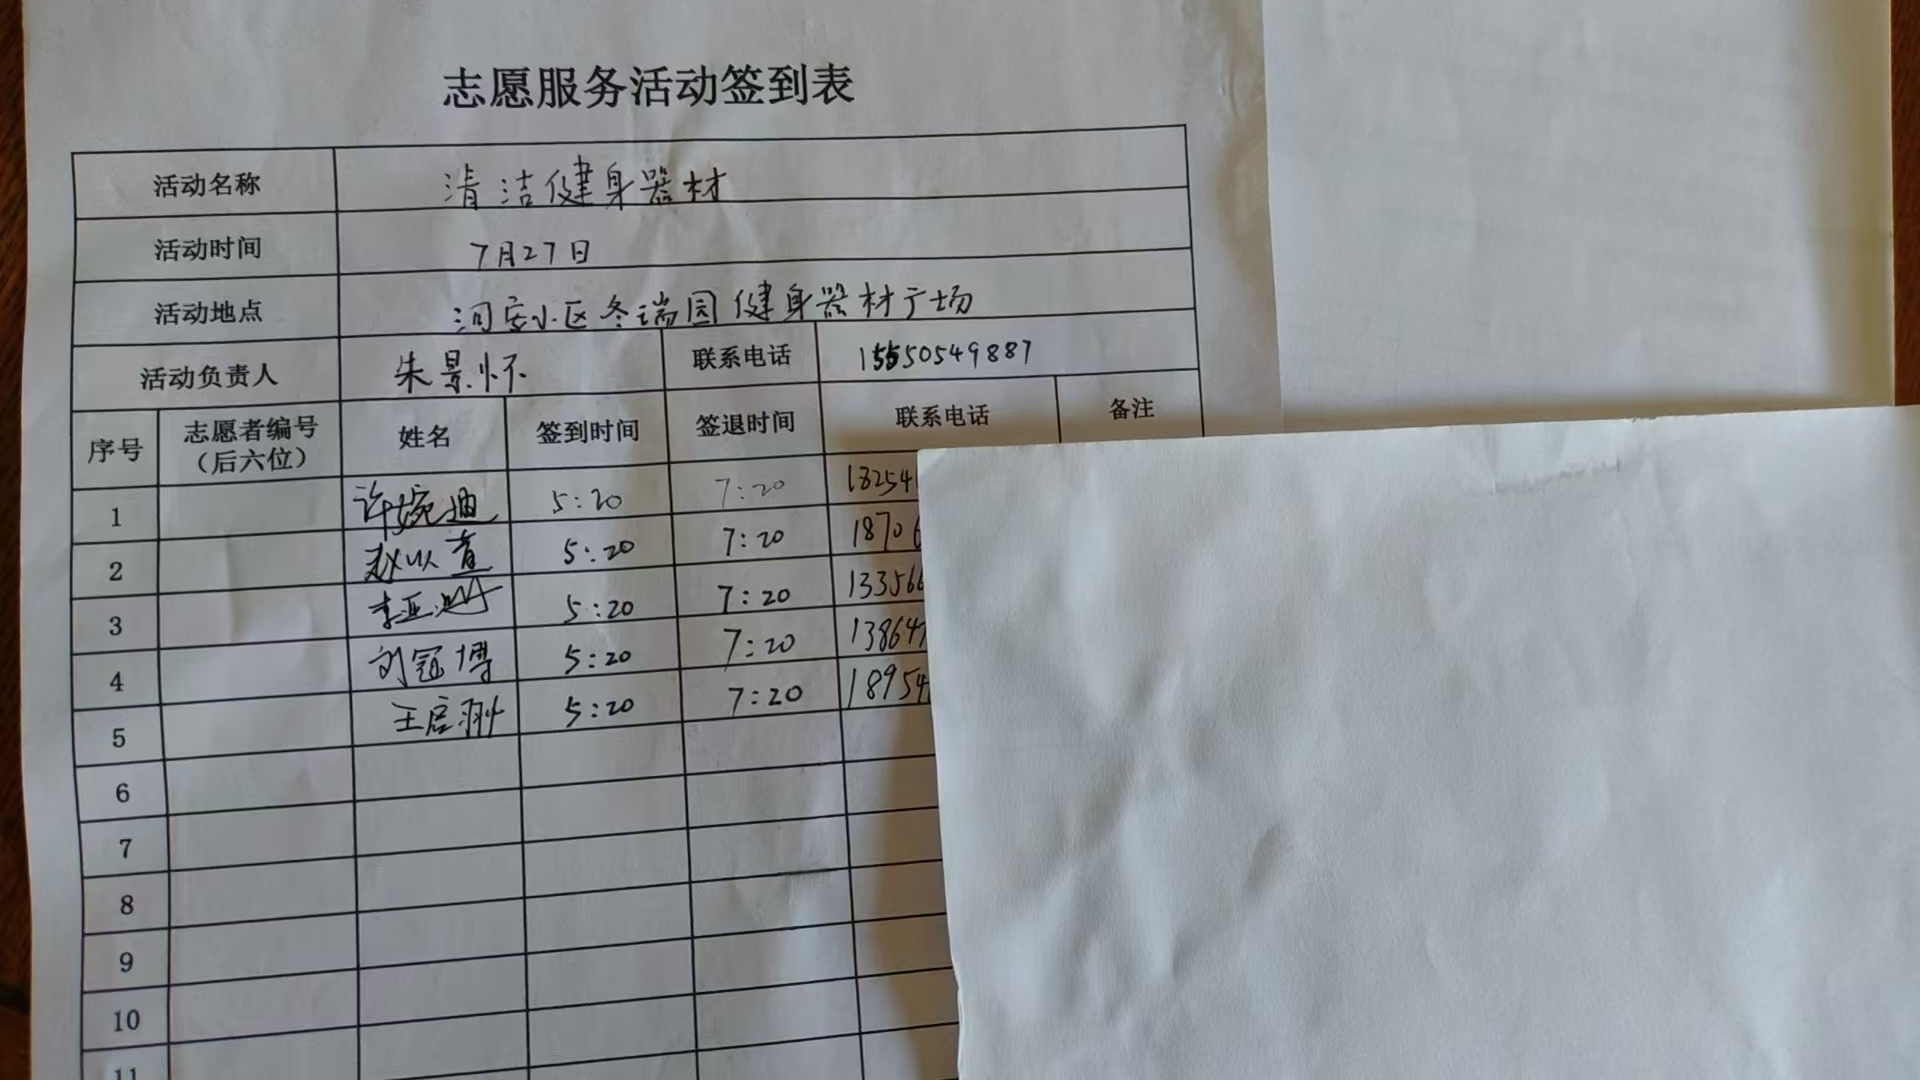 志愿服务活动签到表
活动名称 清洁健身器材
活动时间 7月27日
活动地点 河安小区冬瑞园健身器材广场
活动负责人 朱景怀 联系电话 15550549887
序号 志愿者编号（后六位） 姓名 签到时间 签退时间 联系电话 备注
1 许婉迪 5:20 7:20 18254
2 赵以 5:20 7:20 18706
3 李亚 5:20 7:20 133566
4 刘冠博 5:20 7:20 138647
5 王启翀 5:20 7:20 18954
6
7
8
9
10
11